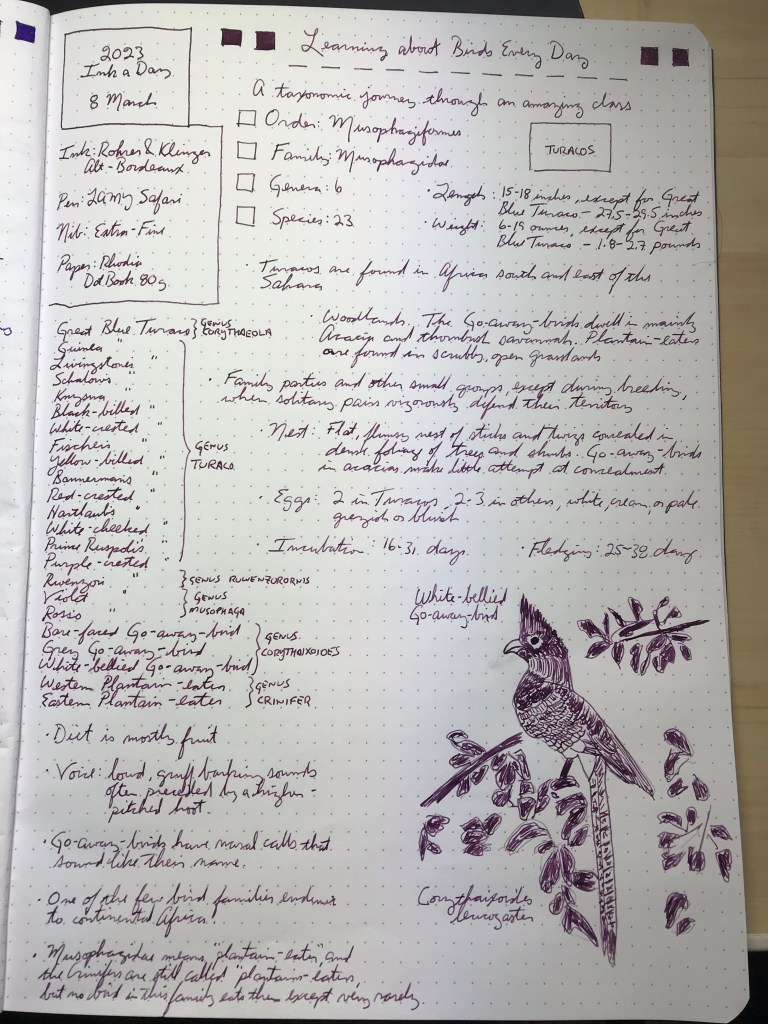 2023
Ink a Day
8 March
Learning about Birds Every Day
A taxonomic journey through an amazing class
Order: Musophagiformes
Family: Musophagidae
Genera: 6
Species: 23
TURACOS
Ink: Rohrer & Klingner
Alt-Bordeaux
Pen: LAMY Safari
Nib: Extra-Fine
Paper: Rhodia
DotBook 80g
· Length: 15-18 inches, except for Great
Blue Turaco - 27.5-29.5 inches
· Weight: 6-19 ounces, except for Great
Blue Turaco - 1.8-2.7 pounds
· Turacos are found in Africa south and east of the
Sahara
· Woodlands. The Go-away-birds dwell in mainly
Acacia and thornbush savannah. Plantain-eaters
are found in scrubby, open grasslands
· Family parties and other small groups, except during breeding,
when solitary pairs vigorously defend their territory
· Nest: Flat, flimsy nest of sticks and twigs concealed in
dense foliage of trees and shrubs. Go-away-birds
in acacias make little attempt at concealment.
· Eggs: 2 in Turacos, 2-3 in others, white, cream, or pale
greyish or bluish
· Incubation: 16-31 days
· Fledging: 25-39 days
Great Blue Turaco } GENUS CORYTHAEOLA
Guinea "
Livingstones "
Schalows "
Knysna "
Black-billed "
White-crested "
Fischers "
Yellow-billed "
Bannermans "
Red-crested "
Hartlaubs "
White-cheeked "
Prince Ruspolis "
Purple-crested "
GENUS
TURACO
Rwenzori " } GENUS RUWENZORORNIS
Violet "
Rosss "
} GENUS
MUSOPHAGA
Bare-faced Go-away-bird
Grey Go-away-bird
White-bellied Go-away-bird
} GENUS
CORYTHAIXOIDES
Western Plantain-eater
Eastern Plantain-eater
} GENUS
CRINIFER
· Diet is mostly fruit
· Voice: loud, gruff barking sounds
often preceded by a higher-
pitched hoot.
· Go-away-birds have nasal calls that
sound like their name.
· One of the few bird families endemic
to continental Africa.
· Musophagidae means "plantain-eater", and
the Crinifers are still called plantain-eaters,
but no bird in this family eats them except very rarely.
White-bellied
Go-away-bird
Corythaixoides
leucogaster